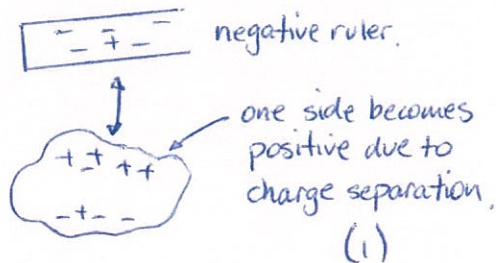 - - -
- + -
negative ruler.
one side becomes
positive due to
charge separation.
+ + + +
-
- + - -
(1)